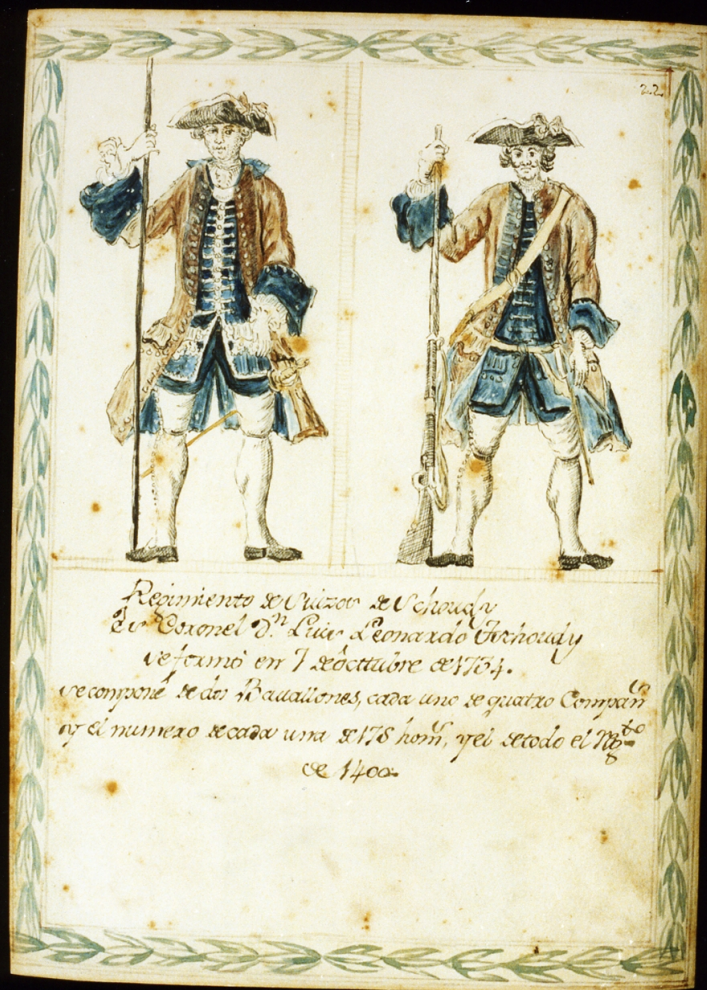 22
Regimiento de Suizos de Schoudy
és Coronel D.ⁿ Luis Leonardo Tschoudy
se formó en 7 de Octtubre de 1734.
se componé de dos Batallones, cada uno de quatro Compañ.ˢ
y el numero de cada una de 175 hom.ˢ, y el de todo el Rg.ᵗᵒ
de 1400